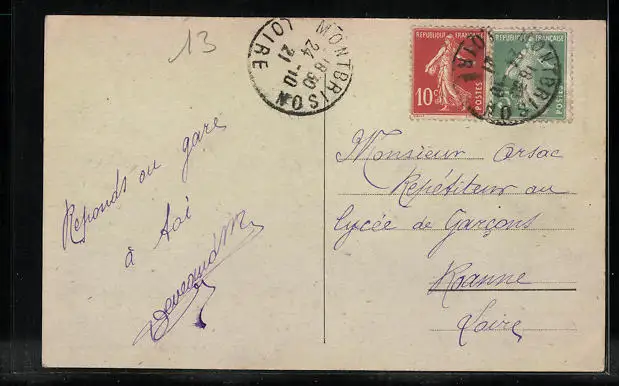 13
MONTBRISON
18 30
24 -10
21
LOIRE
REPUBLIQUE FRANÇAISE
10c
POSTES
REPUBLIQUE FRANÇAISE
POSTES
MONTBRISON
LOIRE
Reponds ou gare
à toi
Monsieur Orsac
Repétiteur au
lycée de Garçons
Roanne
Loire